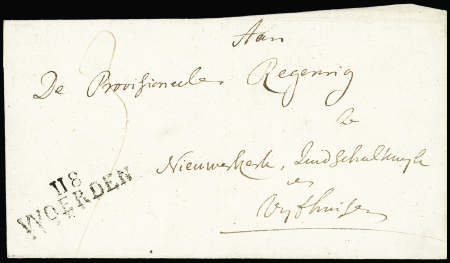 Aan
De Provisioneele Regering
te
Nieuwerkerk,
en
Vyfhuisen
118
WOERDEN